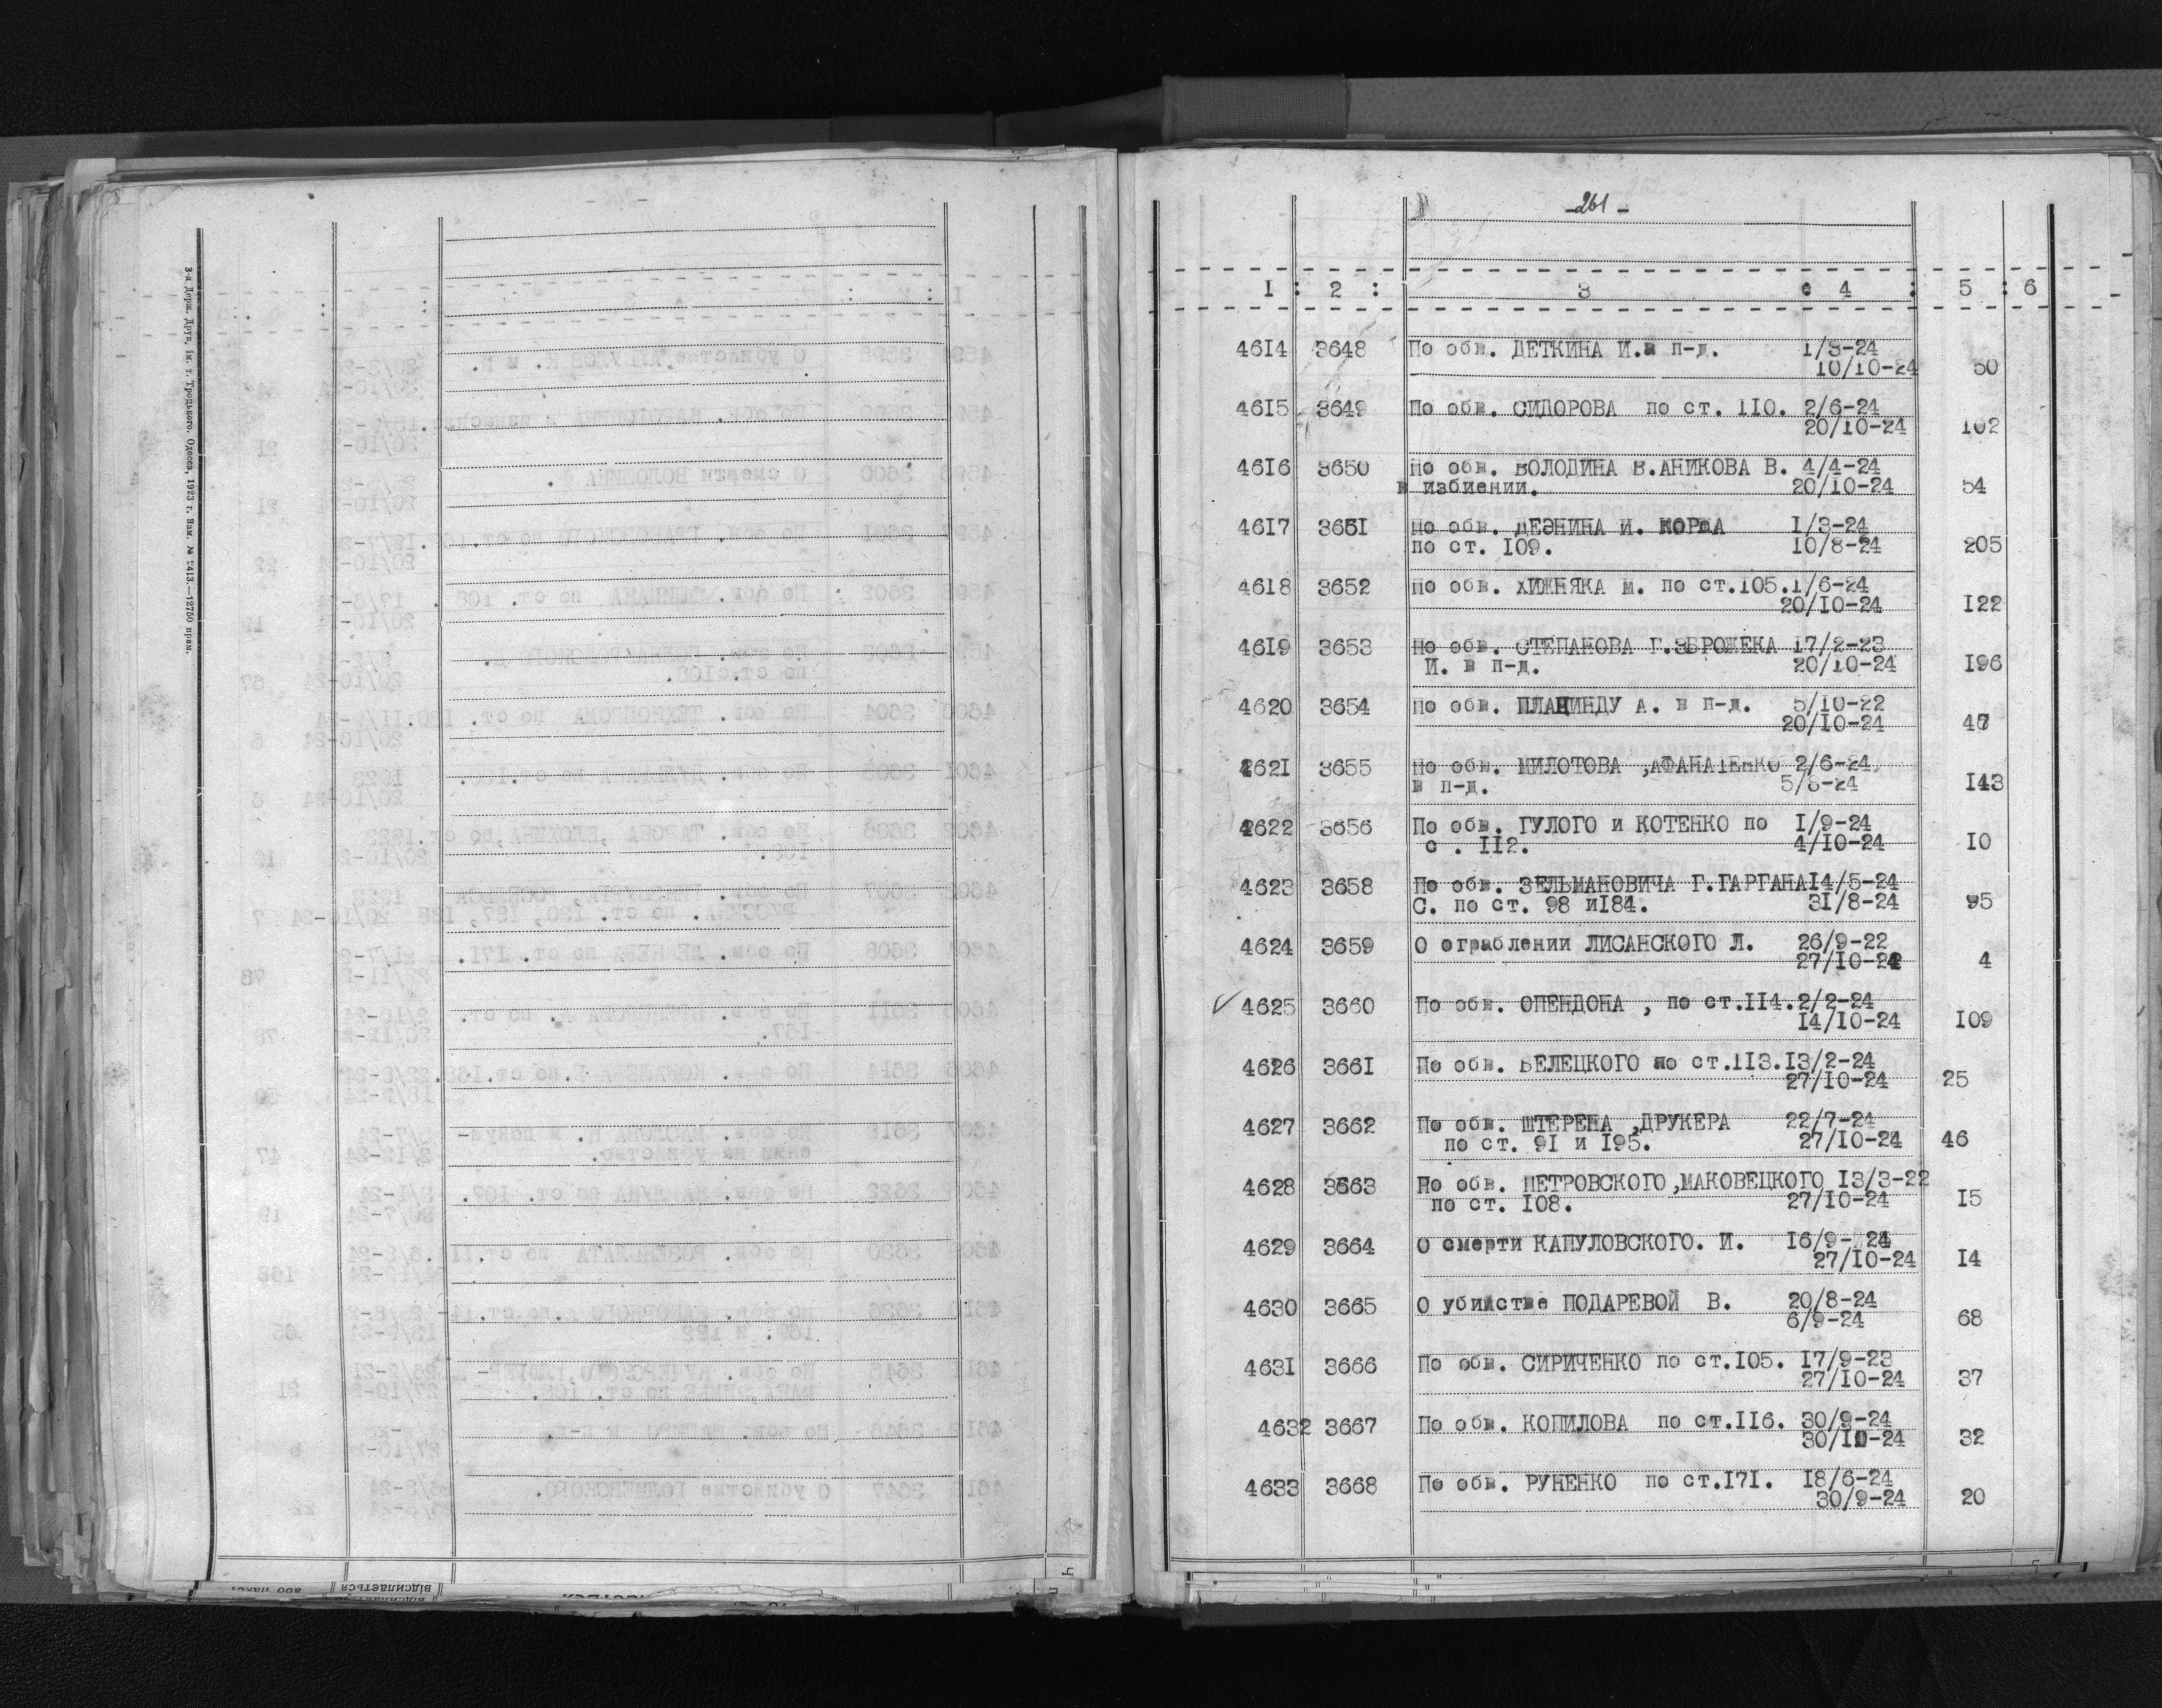 3-я Держ. Друк. ім. т. Троцького. Одесса, 1923 г. Зам. № 2413.—12750 прим.
-261-
1 : 2 : 3 : 4 : 5 : 6
4614 3648 По обв. ДЕТКИНА И.в п-д. 1/3-24
10/10-24 50
4615 3649 По обв. СИДОРОВА по ст. 110. 2/6-24
20/10-24 102
4616 3650 По обв. ВОЛОДИНА В.АНИКОВА В. 4/4-24
в избиении. 20/10-24 54
4617 3651 По обв. ДЕЭНИНА И. КОРФА 1/3-24
по ст. 109. 10/8-24 205
4618 3652 По обв. ХИЖНЯКА М. по ст.105.1/6-24
20/10-24 122
4619 3653 По обв. СТЕПАНОВА Г.ЗБРОЖЕКА 17/2-23
И. в п-д. 20/10-24 196
4620 3654 По обв. ПЛАЦИНДУ А. в п-д. 5/10-22
20/10-24 47
4621 3655 По обв. МИЛОТОВА ,АФАНАТЕНКО 2/6-24
в п-д. 5/8-24 143
4622 3656 По обв. ГУЛОГО и КОТЕНКО по 1/9-24
с . 112. 4/10-24 10
4623 3658 По обв. ЗЕЛЬМАНОВИЧА Г.ГАРГАНА14/5-24
С. по ст. 98 и184. 31/8-24 95
4624 3659 О ограблении ЛИСАНСКОГО Л. 26/9-22
27/10-24 4
✓ 4625 3660 По обв. ОПЕНДОНА , по ст.114.2/2-24
14/10-24 109
4626 3661 По обв. БЕЛЕЦКОГО по ст.113.13/2-24
27/10-24 25
4627 3662 По обв. ШТЕРЕНА ,ДРУКЕРА 22/7-24
по ст. 91 и 195. 27/10-24 46
4628 3663 По обв. ПЕТРОВСКОГО,МАКОВЕЦКОГО 13/3-22
по ст. 108. 27/10-24 15
4629 3664 О смерти КАПУЛОВСКОГО. И. 16/9- 24
27/10-24 14
4630 3665 О убийстве ПОДАРЕВОЙ В. 20/8-24
6/9-24 68
4631 3666 По обв. СИРИЧЕНКО по ст.105. 17/9-23
27/10-24 37
4632 3667 По обв. КОПИЛОВА по ст.116. 30/9-24
30/10-24 32
4633 3668 По обв. РУНЕНКО по ст.171. 18/6-24
30/9-24 20